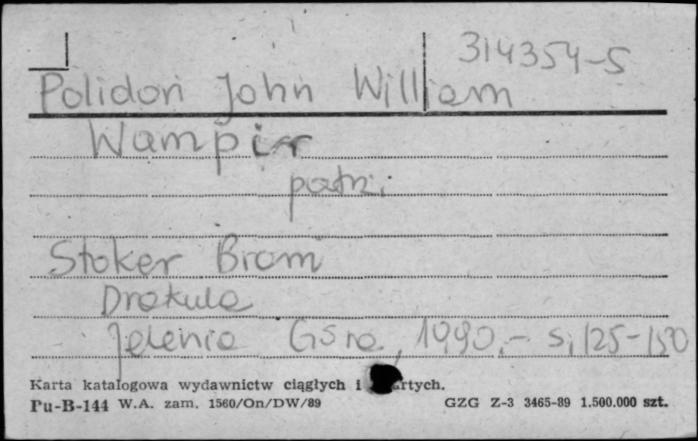 314354-5
Polidori John William
Wampir
patrz:
Stoker Bram
Drakula
Jelenia Góra, 1990.- S. 125-150
Karta katalogowa wydawnictw ciągłych i rtych.
Pu-B-144 W.A. zam. 1560/On/DW/89 GZG Z-3 3465-89 1.500.000 szt.